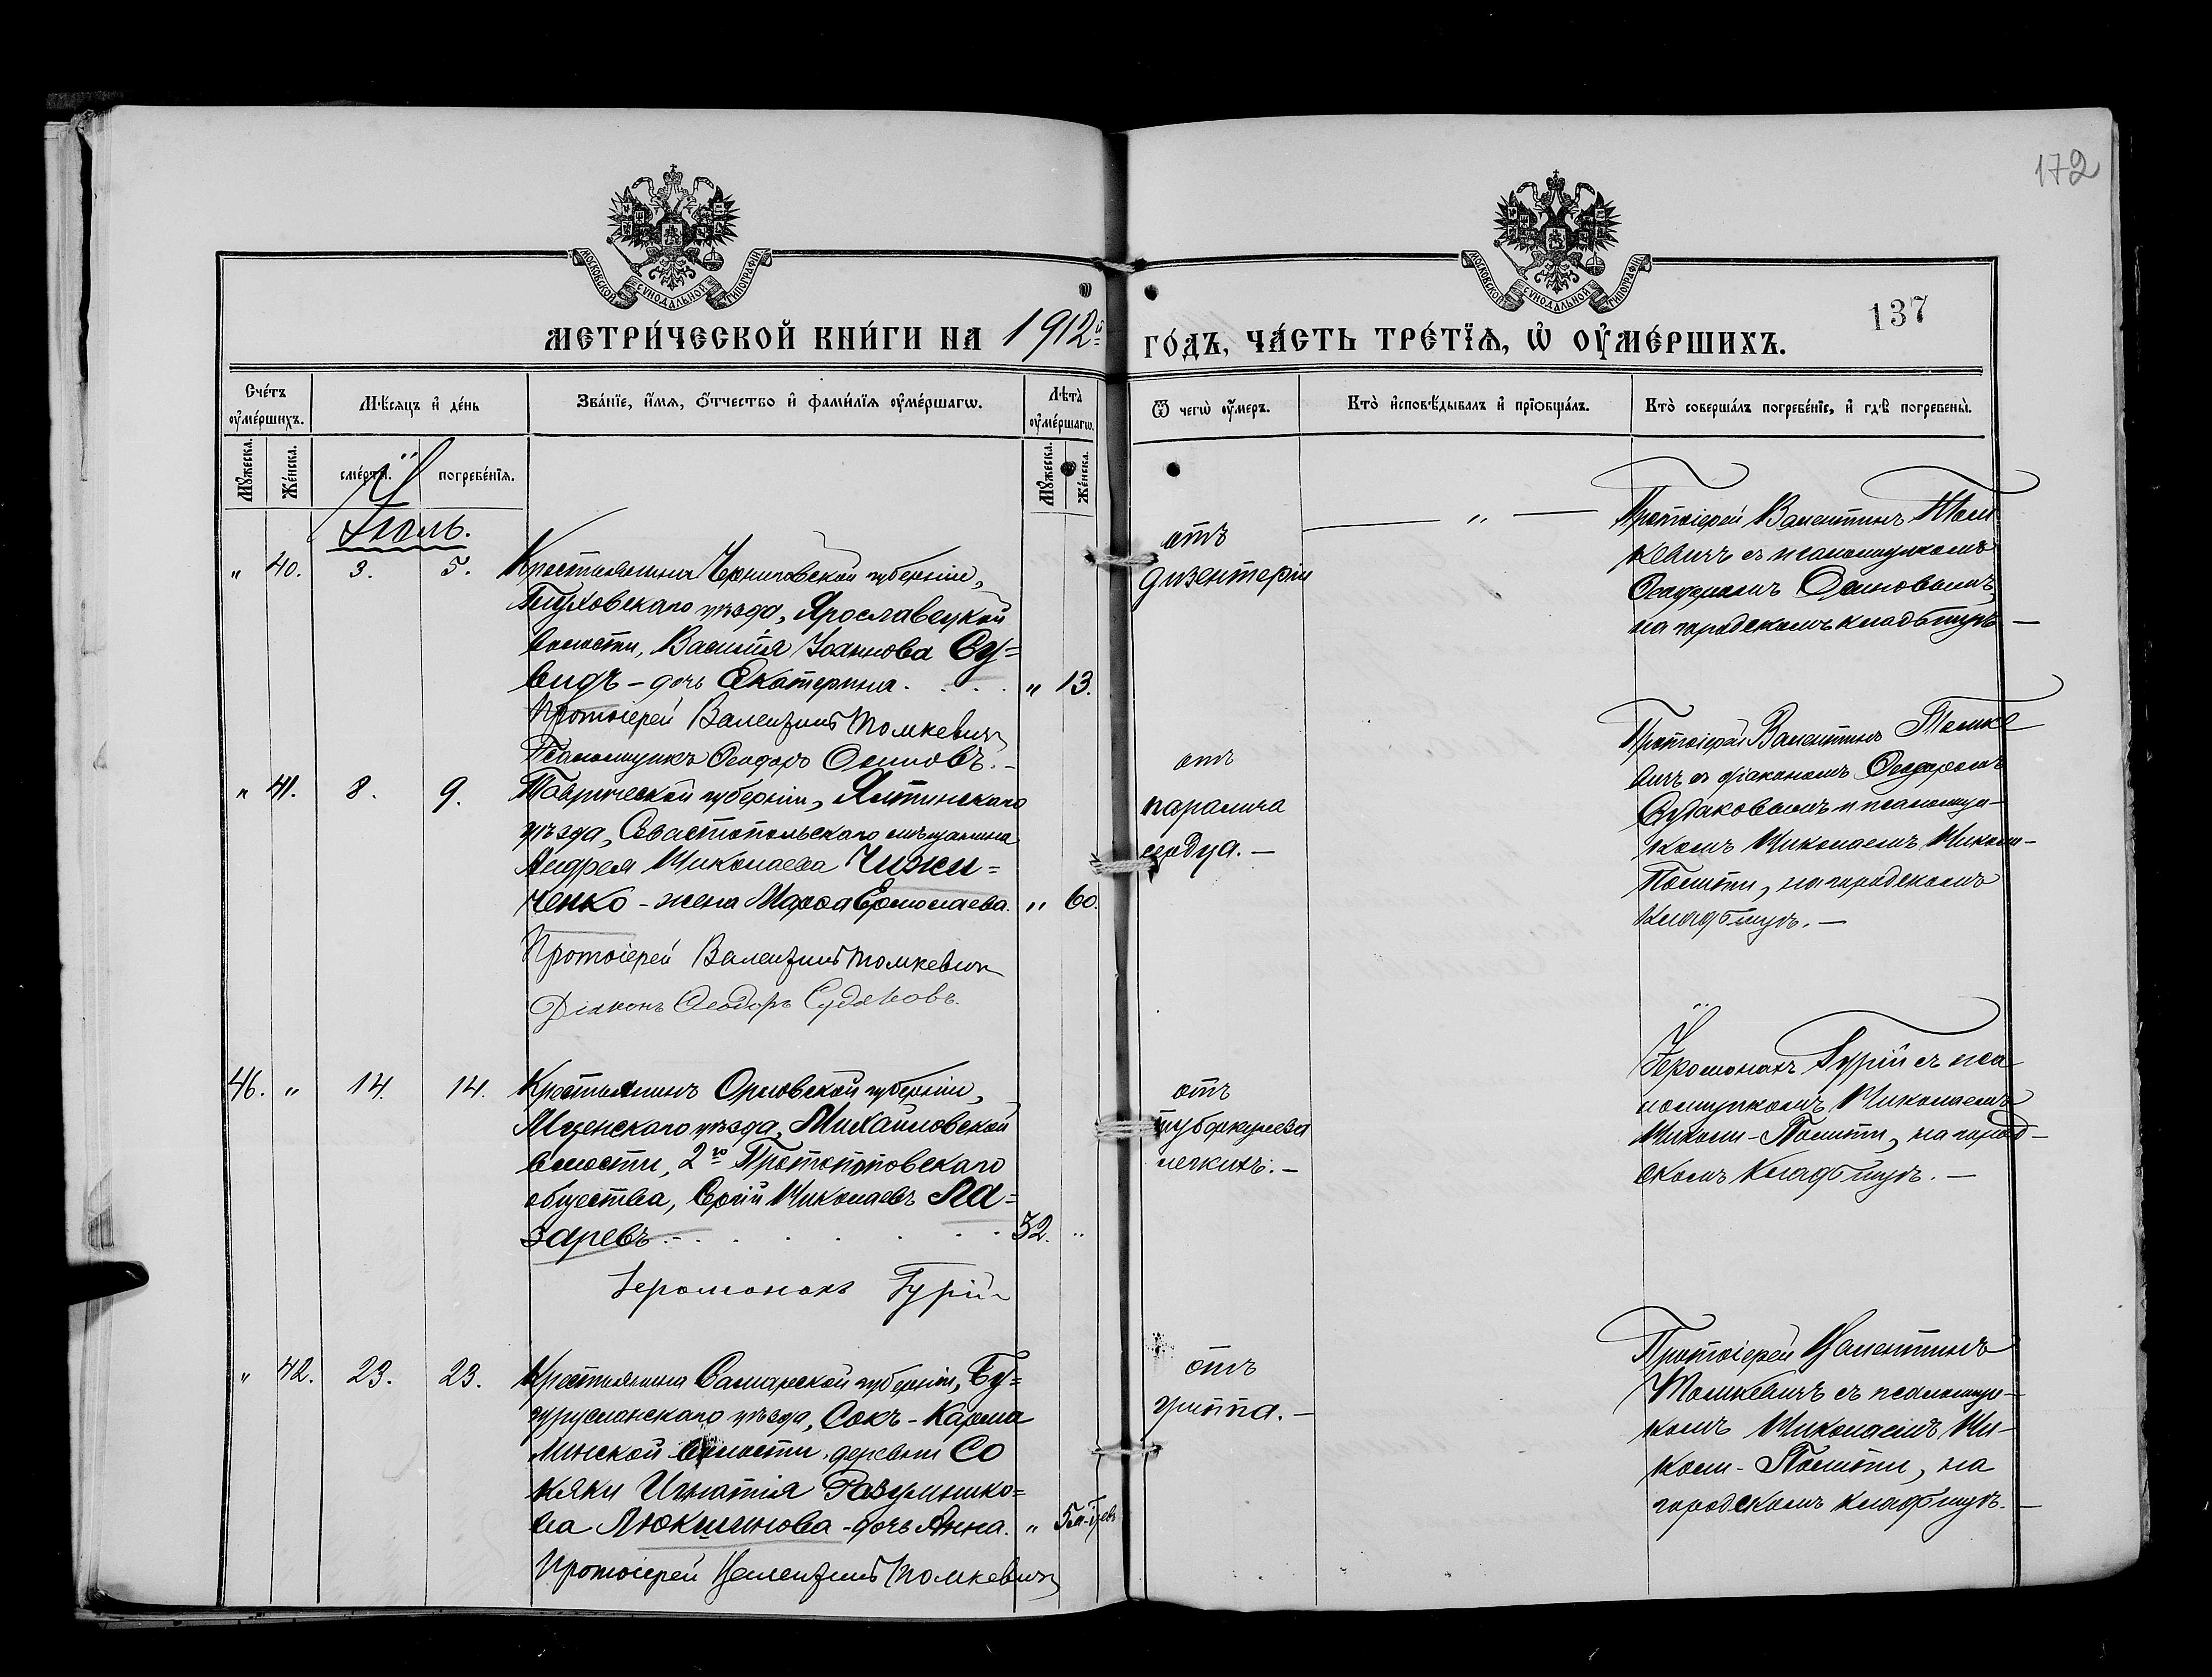 172
МОСКОВСКОЙ СѴНОДАЛЬНОЙ ТИПОГРАФІИ
МОСКОВСКОЙ СѴНОДАЛЬНОЙ ТИПОГРАФІИ
137
МЕТРИ́ЧЕСКОЙ КНИ́ГИ НА 1912й
ГО́ДЪ, ЧА́СТЬ ТРЕ́ТЇѦ, Ѡ҆ ОУ҆МЕ́РШИХЪ.
Сче́тъ оу҆ме́ршихъ.
Мѣ́сѧцъ и҆ де́нь
Зва́нїе, и҆́мѧ, ѻ҆́тчество и҆ фами́лїѧ оу҆ме́ршагѡ.
Лѣ́та оу҆ме́ршагѡ.
Ѿ чегѡ̀ оу҆́меръ.
Кто̀ и҆сповѣ́дывалъ и҆ прїѡбща́лъ.
Кто̀ соверша́лъ погребе́нїе, и҆ гдѣ̀ погребены̀.
Мꙋ́жеска.
Же́нска.
сме́рти.
погребе́нїѧ.
Мꙋ́жеска.
Же́нска.
Іюль.
" 40. 3. 5.
Крестьянина Черниговской губерніи,
Глуховскаго уѣзда, Ярославецкой
волости, Василія Іоаннова Су=
видъ - дочь Екатерина. . . . " 13.
Протоіерей Валентинъ Томкевичъ
Псаломщикъ Ѳеодоръ Осиповъ. -
отъ
дизентеріи
— " —
Протоіерей Валентинъ Том
кевичъ съ псаломщикомъ
Ѳеодоромъ Осиповымъ,
на городскомъ кладбищѣ —
" 41. 8. 9.
Таврической губерніи, Ялтинскаго
уѣзда, Севастопольскаго мѣщанина
Андрея Николаева Чижи=
ченко - жена Марѳа Ермолаева. " 60.
Протоіерей Валентинъ Томкевичъ
Діаконъ Ѳеодоръ Судаковъ.
отъ
паралича
сердца. —
Протоіерей Валентинъ Томке
вичъ съ діакономъ Ѳеодоромъ
Судаковымъ и псаломщи-
комъ Николаемъ Николи-
Полити, на городскомъ
кладбищѣ. —
46. " 14. 14.
Крестьянинъ Орловской губерніи,
Мценскаго уѣзда, Михайловской
волости, 2го Протопоповскаго
общества, Сергій Николаевъ Ла=
заревъ. - . . . . . . 32. "
Іеромонахъ Гурій
отъ
туберкулеза
легкихъ. —
Іеромонахъ Гурій съ пса
ломщикомъ Николаемъ
Николи-Полити, на город-
скомъ кладбищѣ. —
" 42. 23. 23.
Крестьянина Самарской губерніи, Бу=
гурусланскаго уѣзда, Сокъ-Карма
линской волости, деревни Со
кяки Игнатія Разумнико=
ва Люкшинова - дочь Анна. "
Протоіерей Валентинъ Томкевичъ
отъ
гриппа. —
Протоіерей Валентинъ
Томкевичъ съ псаломщи-
комъ Николаемъ Ни-
коли-Полити, на
городскомъ кладбищѣ. —